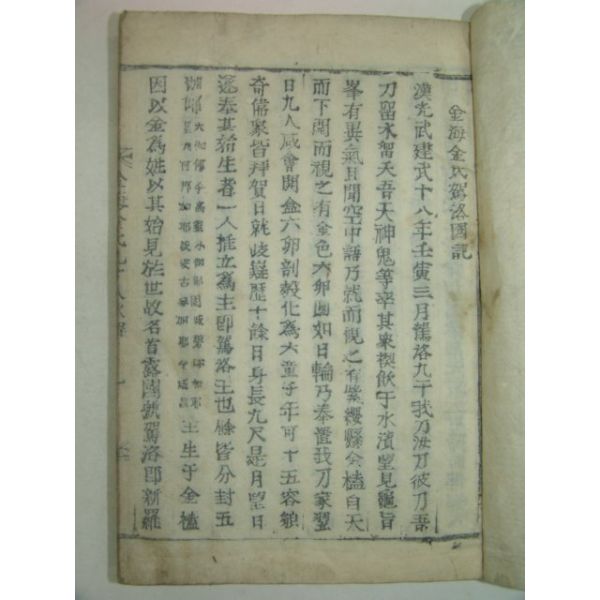 金海金氏駕洛國記
漢光武建武十八年壬寅三月駕洛九干我刀汝刀彼刀吾
刀留水留天吾天神鬼等率其衆禊飮于水濱望見龜旨
峯有異氣且聞空中語乃就而視之有紫纓縣金榼自天
而下開而視之有金色六卵圓如日輪乃奉置我刀家翌
日九人咸會開盒六卵剖殼化爲六童子年可十五容貌
奇偉衆皆拜賀日就岐嶷歷十餘日身長九尺是月望日
遂奉其始生者一人推立爲主即駕洛王也餘皆分封五
伽耶 王生于金榼
因以金爲姓以其始見於世故名首露國號駕洛即新羅